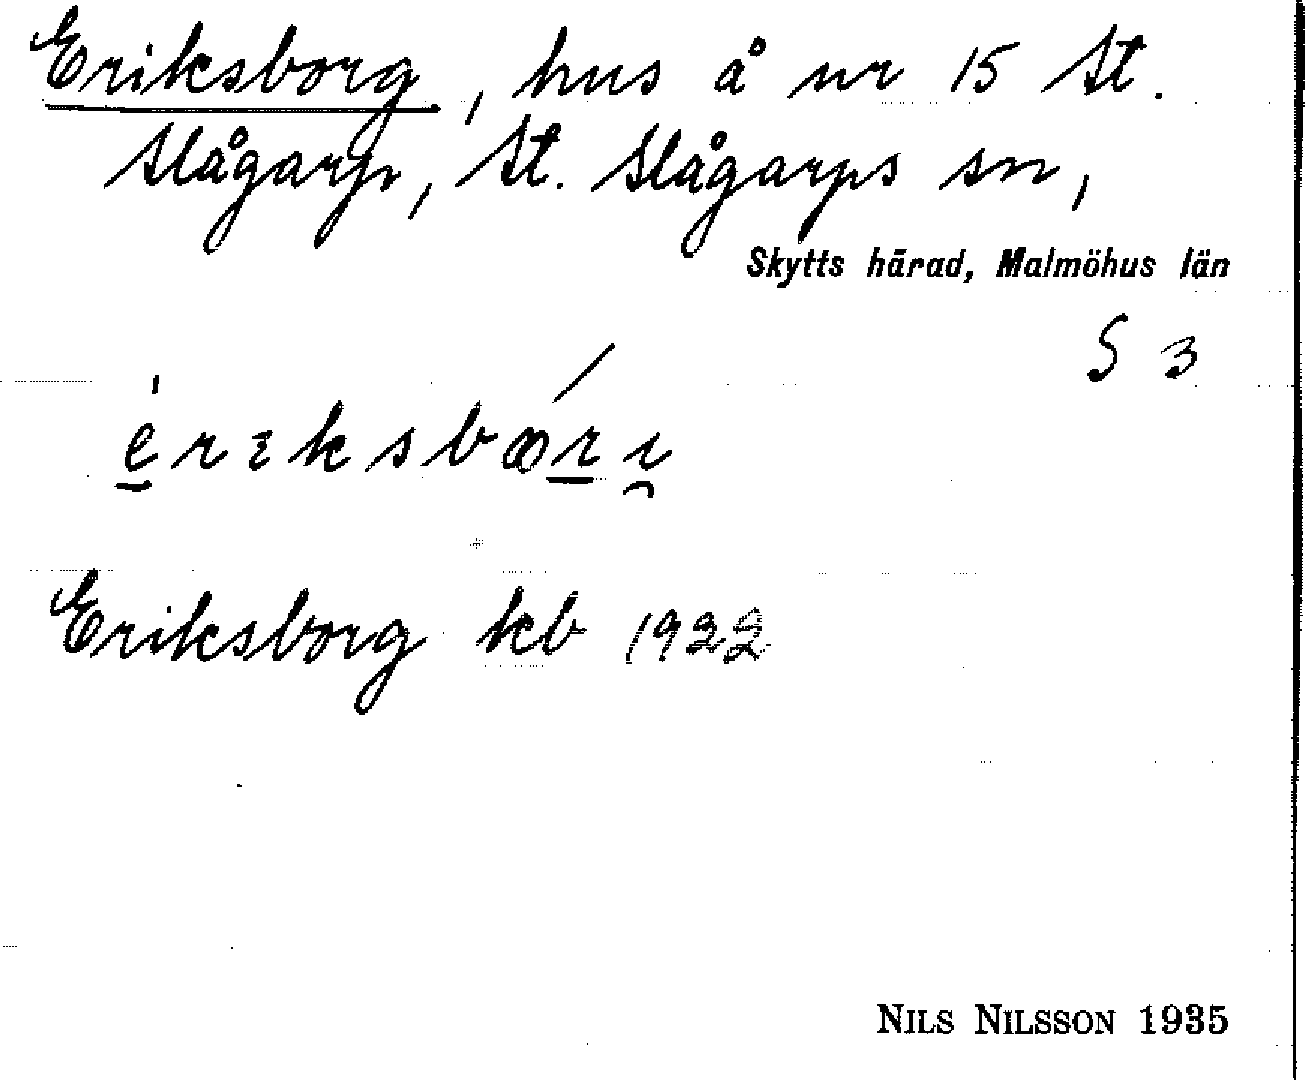 Eriksborg, hus å nr 15 St.
Slågarp, St. Slågarps sn,
Skytts härad, Malmöhus län
S 3
Eriksborg kb 1922
NILS NILSSON 1935